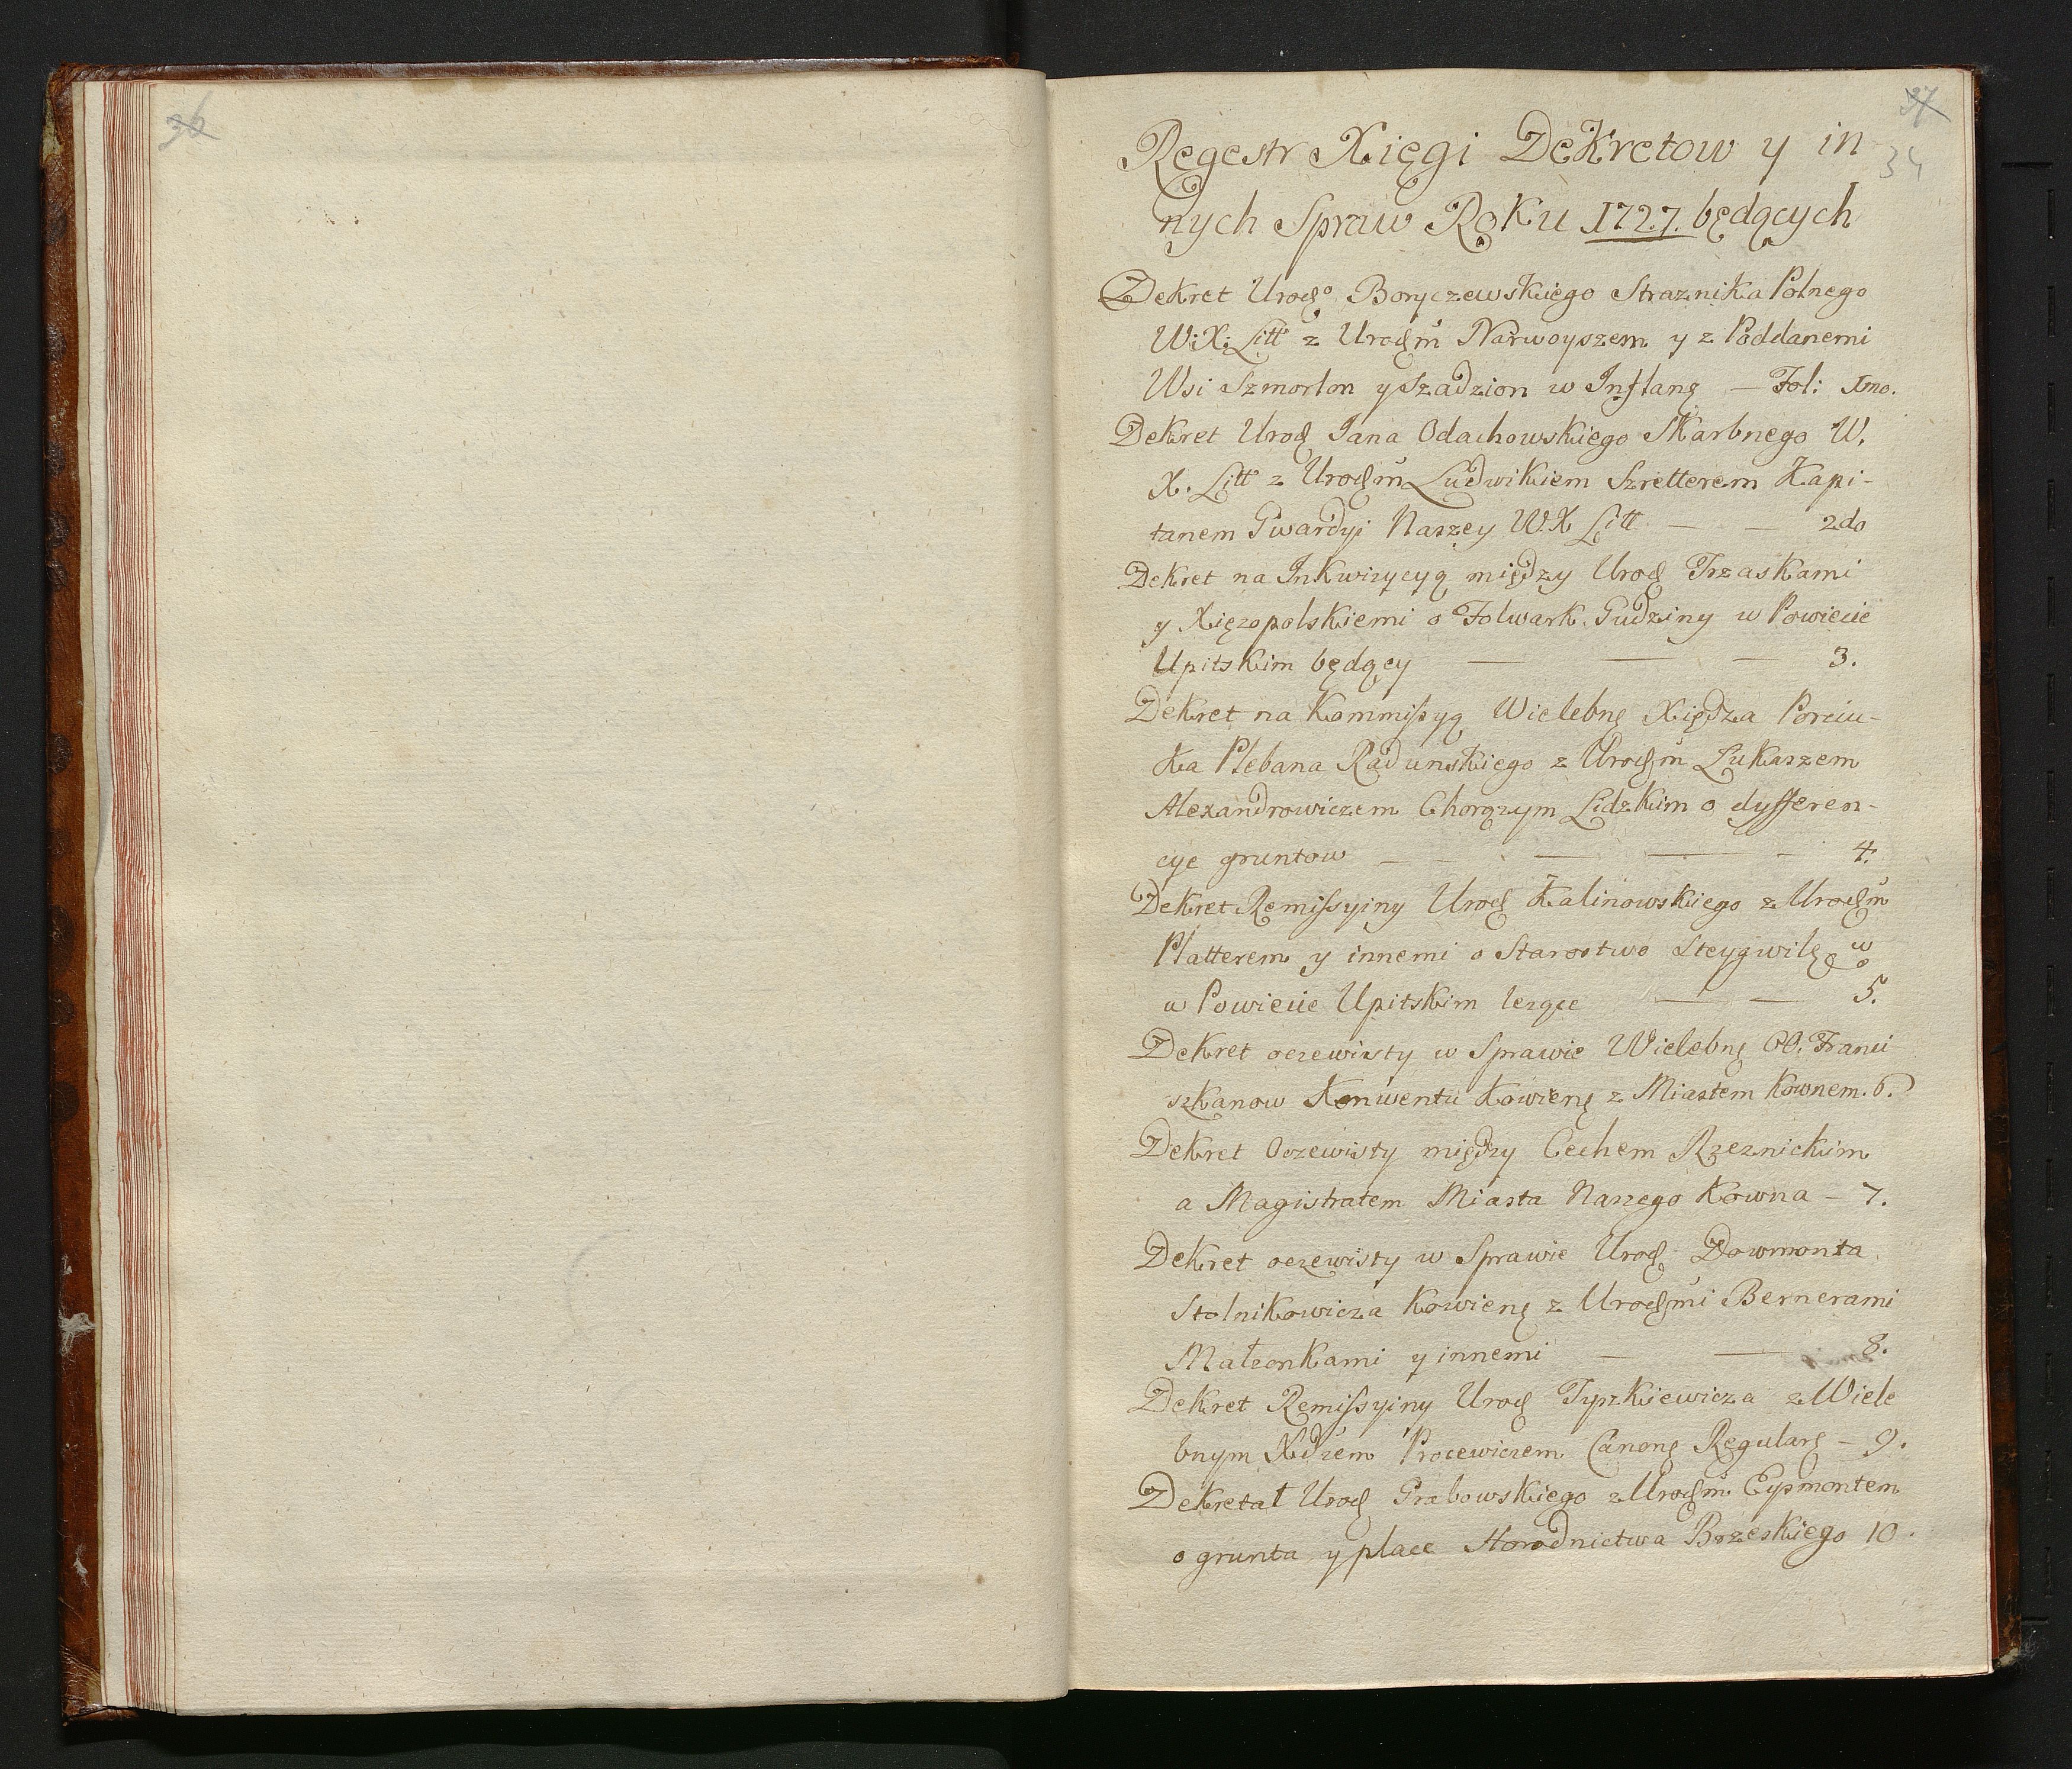 36
37
34
Regestr Xięgi Dekretow y in
nych Spraw Roku 1727. będących
Dekret Urodzo Boryczewskiego Straznika Polnego
W: X: Litt z Urodzm Narwoyszem y z Poddanemi
Wsi Szmorlon y Szadzion w Inflanę — Fol: Imo.
Dekret Urodz Jana Odachowskiego Skarbnego W.
X. Litt z Urodzm Ludwikiem Szretterem Kapi-
tanem Gwardyi Naszey W.X Litt — — 2do
Dekret na Inkwizycyą między Urodz Trzaskami
y Xięzopolskiemi o Folwark Gudziny w Powiecie
Upitskim będący — — — 3.
Dekret na Kommissyą Wielebnę Xiędza Porciu-
ka Plebana Radunskiego z Urodzm Lukaszem
Alexandrowiczem Chorązym Lidzkim o dyfferen-
cye gruntow — — — — 4.
Dekret Remissyiny Urodz Kalinowskiego z Urodzm
Platterem y innemi o Starostwo Steygwilę wo
w Powiecie Upitskim lezące — — 5.
Dekret oczewisty w Sprawie Wielebnę OO. Franci
szkanow Konwentu Kowienę z Miastem Kownem. 6.
Dekret Oczewisty między Cechem Rzeznickim
a Magistratem Miasta Naszego Kowna — 7.
Dekret oczewisty w Sprawie Urodz Dowmonta
Stolnikowicza Kowienę z Urodzmi Bernerami
Małzonkami y innemi — — 8.
Dekret Remissyiny Urodz Tyszkiewicza z Wiele
bnym Xdzem Procewiczem Canonę Regularę — 9.
Dekretał Urodz Grabowskiego z Urodzm Eysmontem
o grunta y place Horodnictwa Brzeskiego 10.